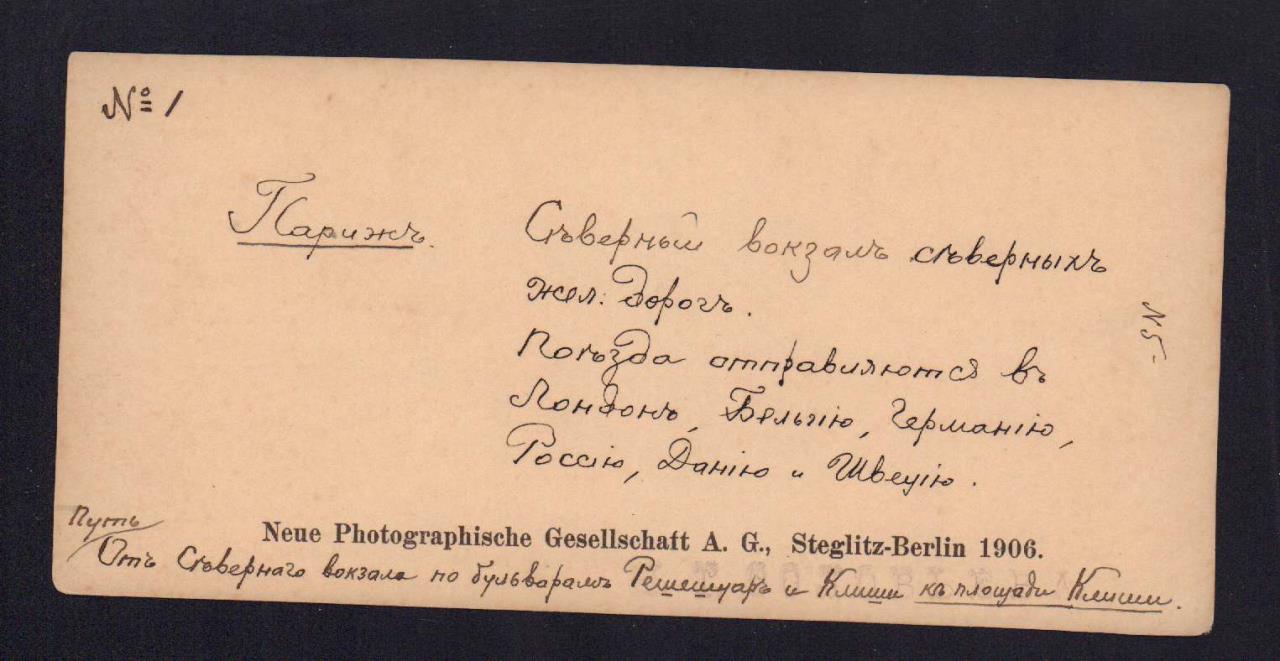 № 1
Парижъ.
Сѣверный вокзалъ сѣверныхъ
жел. дорогъ.
N 5-
Поѣзда отправляются въ
Лондонъ, Бельгію, Германію,
Россію, Данію и Швецію.
Путь
Neue Photographische Gesellschaft A. G., Steglitz-Berlin 1906.
Отъ Сѣвернаго вокзала по бульварамъ Решешуаръ и Клиши къ площади Клиши.